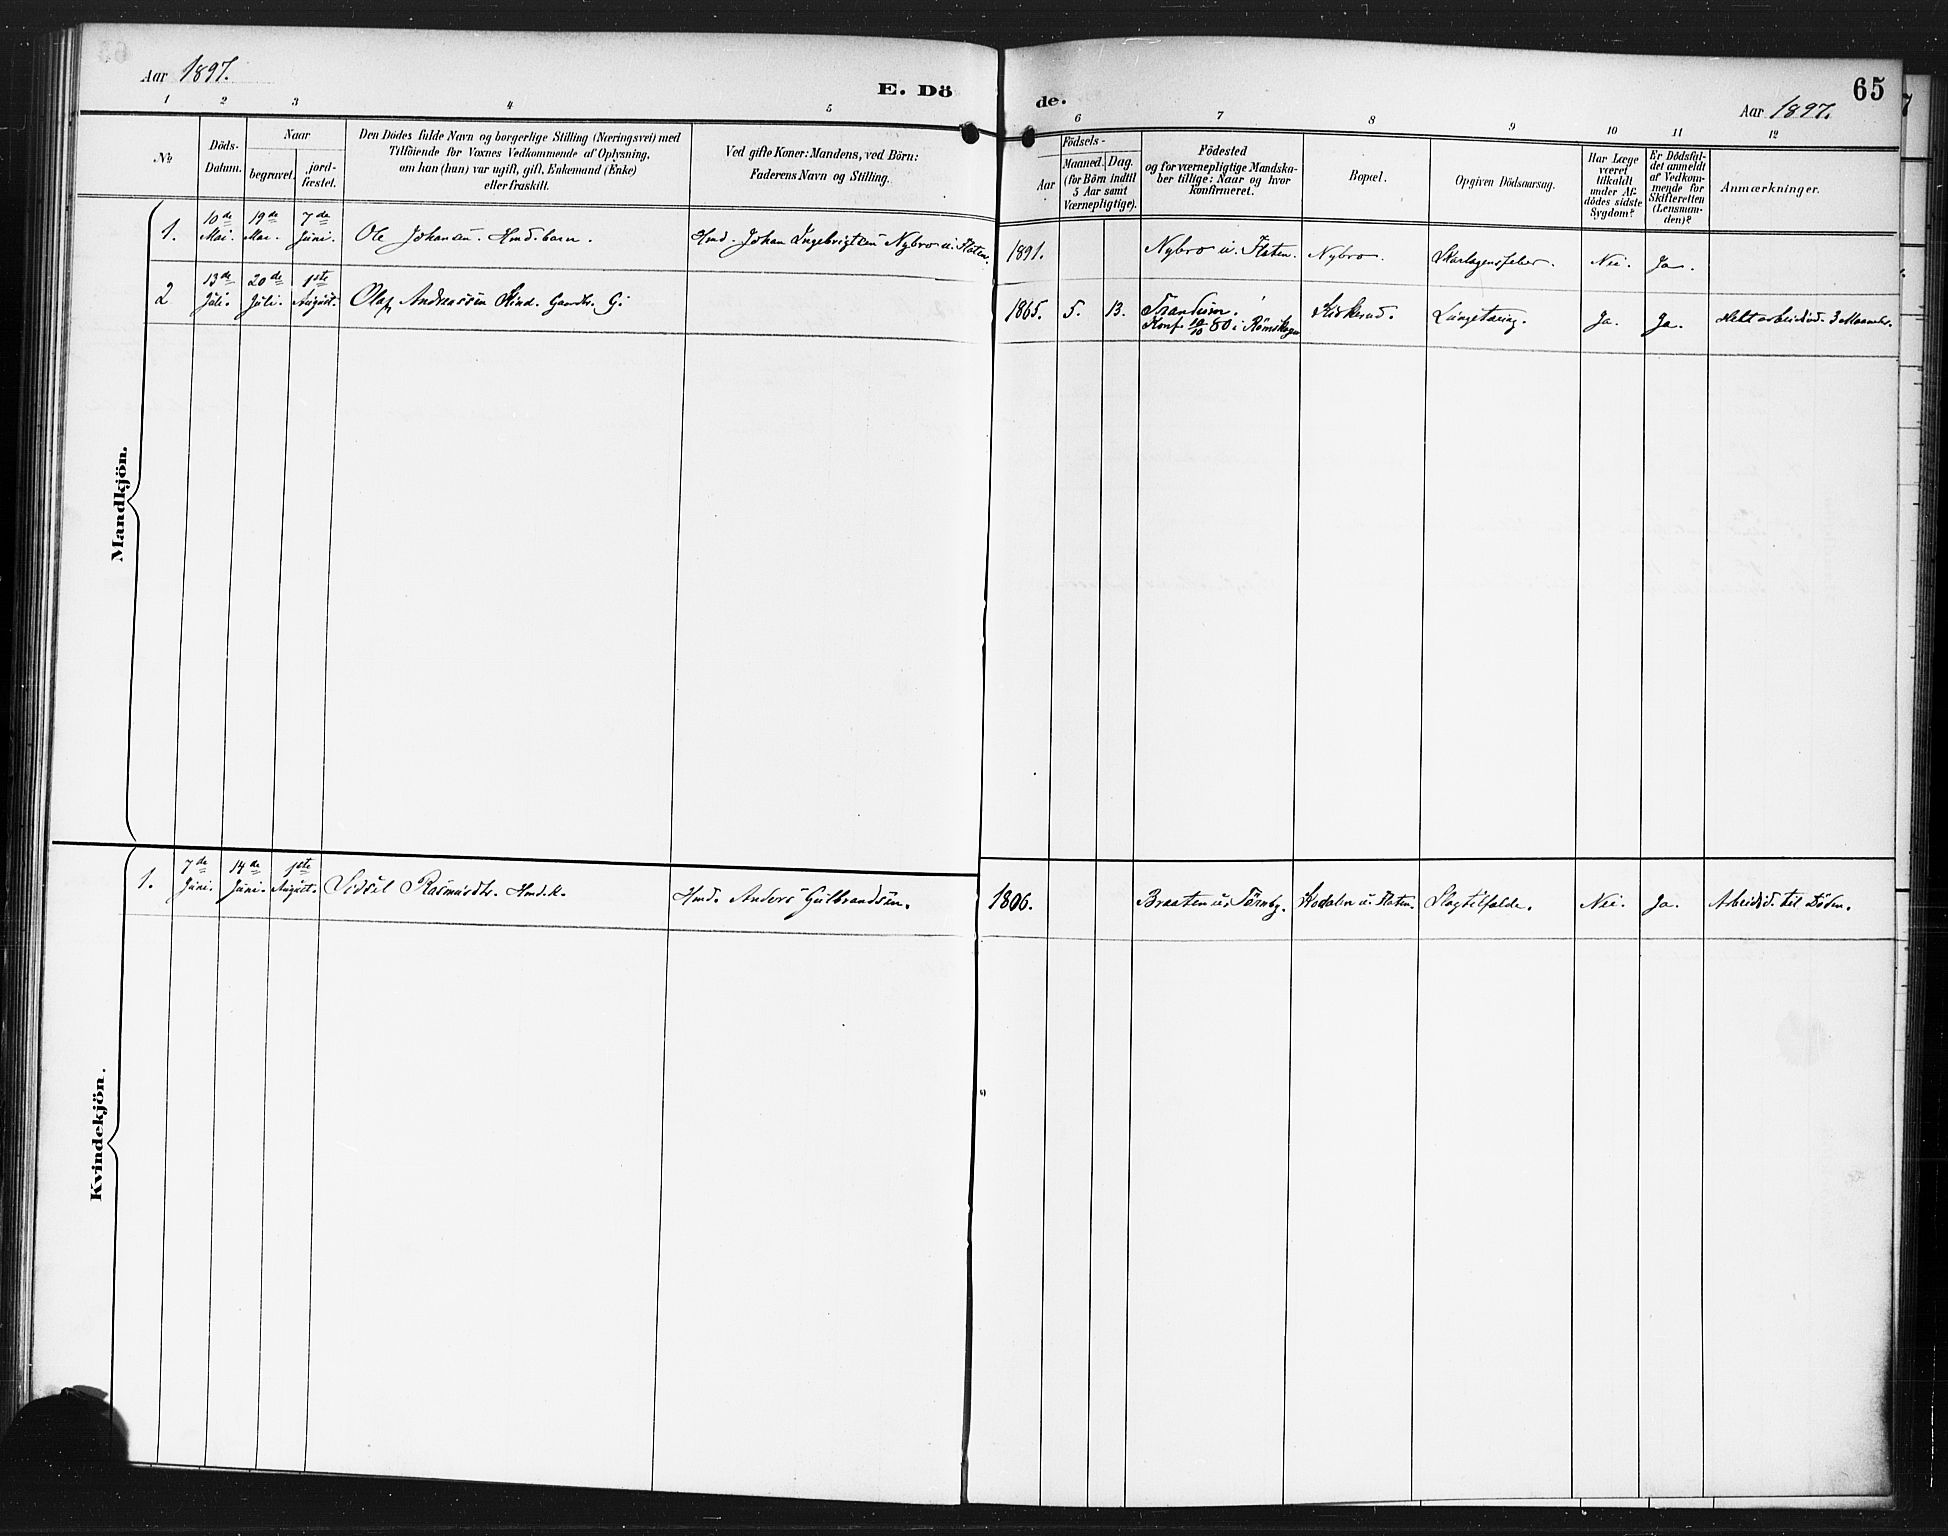 Aar 1897.
E. Dö
de.
Aar 1897.
65
1 2 3 4 5 6 7 8 9 10 11 12
No
Döds-
Datum.
Naar
begravet.
jord-
fæstet.
Den Dödes fulde Navn og borgerlige Stilling (Næringsvei) med
Tilföiende for Voxnes Vedkommende af Oplysning,
om han (hun) var ugift, gift, Enkemand (Enke)
eller fraskilt.
Ved gifte Koner: Mandens, ved Börn:
Faderens Navn og Stilling.
Födsels-
Aar
Maaned. Dag.
(for Börn indtil
5 Aar samt
Værnepligtige).
Födested
og for værnepligtige Mandska-
ber tillige: Naar og hvor
Konfirmeret.
Bopæl.
Opgiven Dödsaarsag.
Har Læge
været
tilkaldt
under Af-
dödes sidste
Sygdom?
Er Dödsfal-
det anmeldt
af Vedkom-
mende for
Skifteretten
(Lensman-
den)?
Anmærkninger.
Mandkjön.
1. 10de Mai. 19de Mai. 7de Juni. Ole Johansen. Hmdsbarn. Hmd. Johan Ingebrigtsen Nybro u. Flaten. 1891. Nybro u. Flaten. Nybro. Skarlagensfeber. Nei. Ja.
2 13de Juli. 20de Juli. 1ste August. Olaf Andreassen Kind. Gaardbr. G. 1865. 5. 13. Trandum.
Konf. 10/10 80 i Rømskogen Kidkerud. Lungetæring. Ja. Ja. arbeidsud. 3 Maaneder.
Kvindekjön.
1. 7de Juni. 14de Juni. 1ste August. Sidsel Rasmusdtr. Hmd.k. Hmd. Anders Gulbrandsen. 1806. Braaten u. Tørnby. u. Flaten. Slagtilfælde. Nei. Ja. Arbeidsd. til Døden.